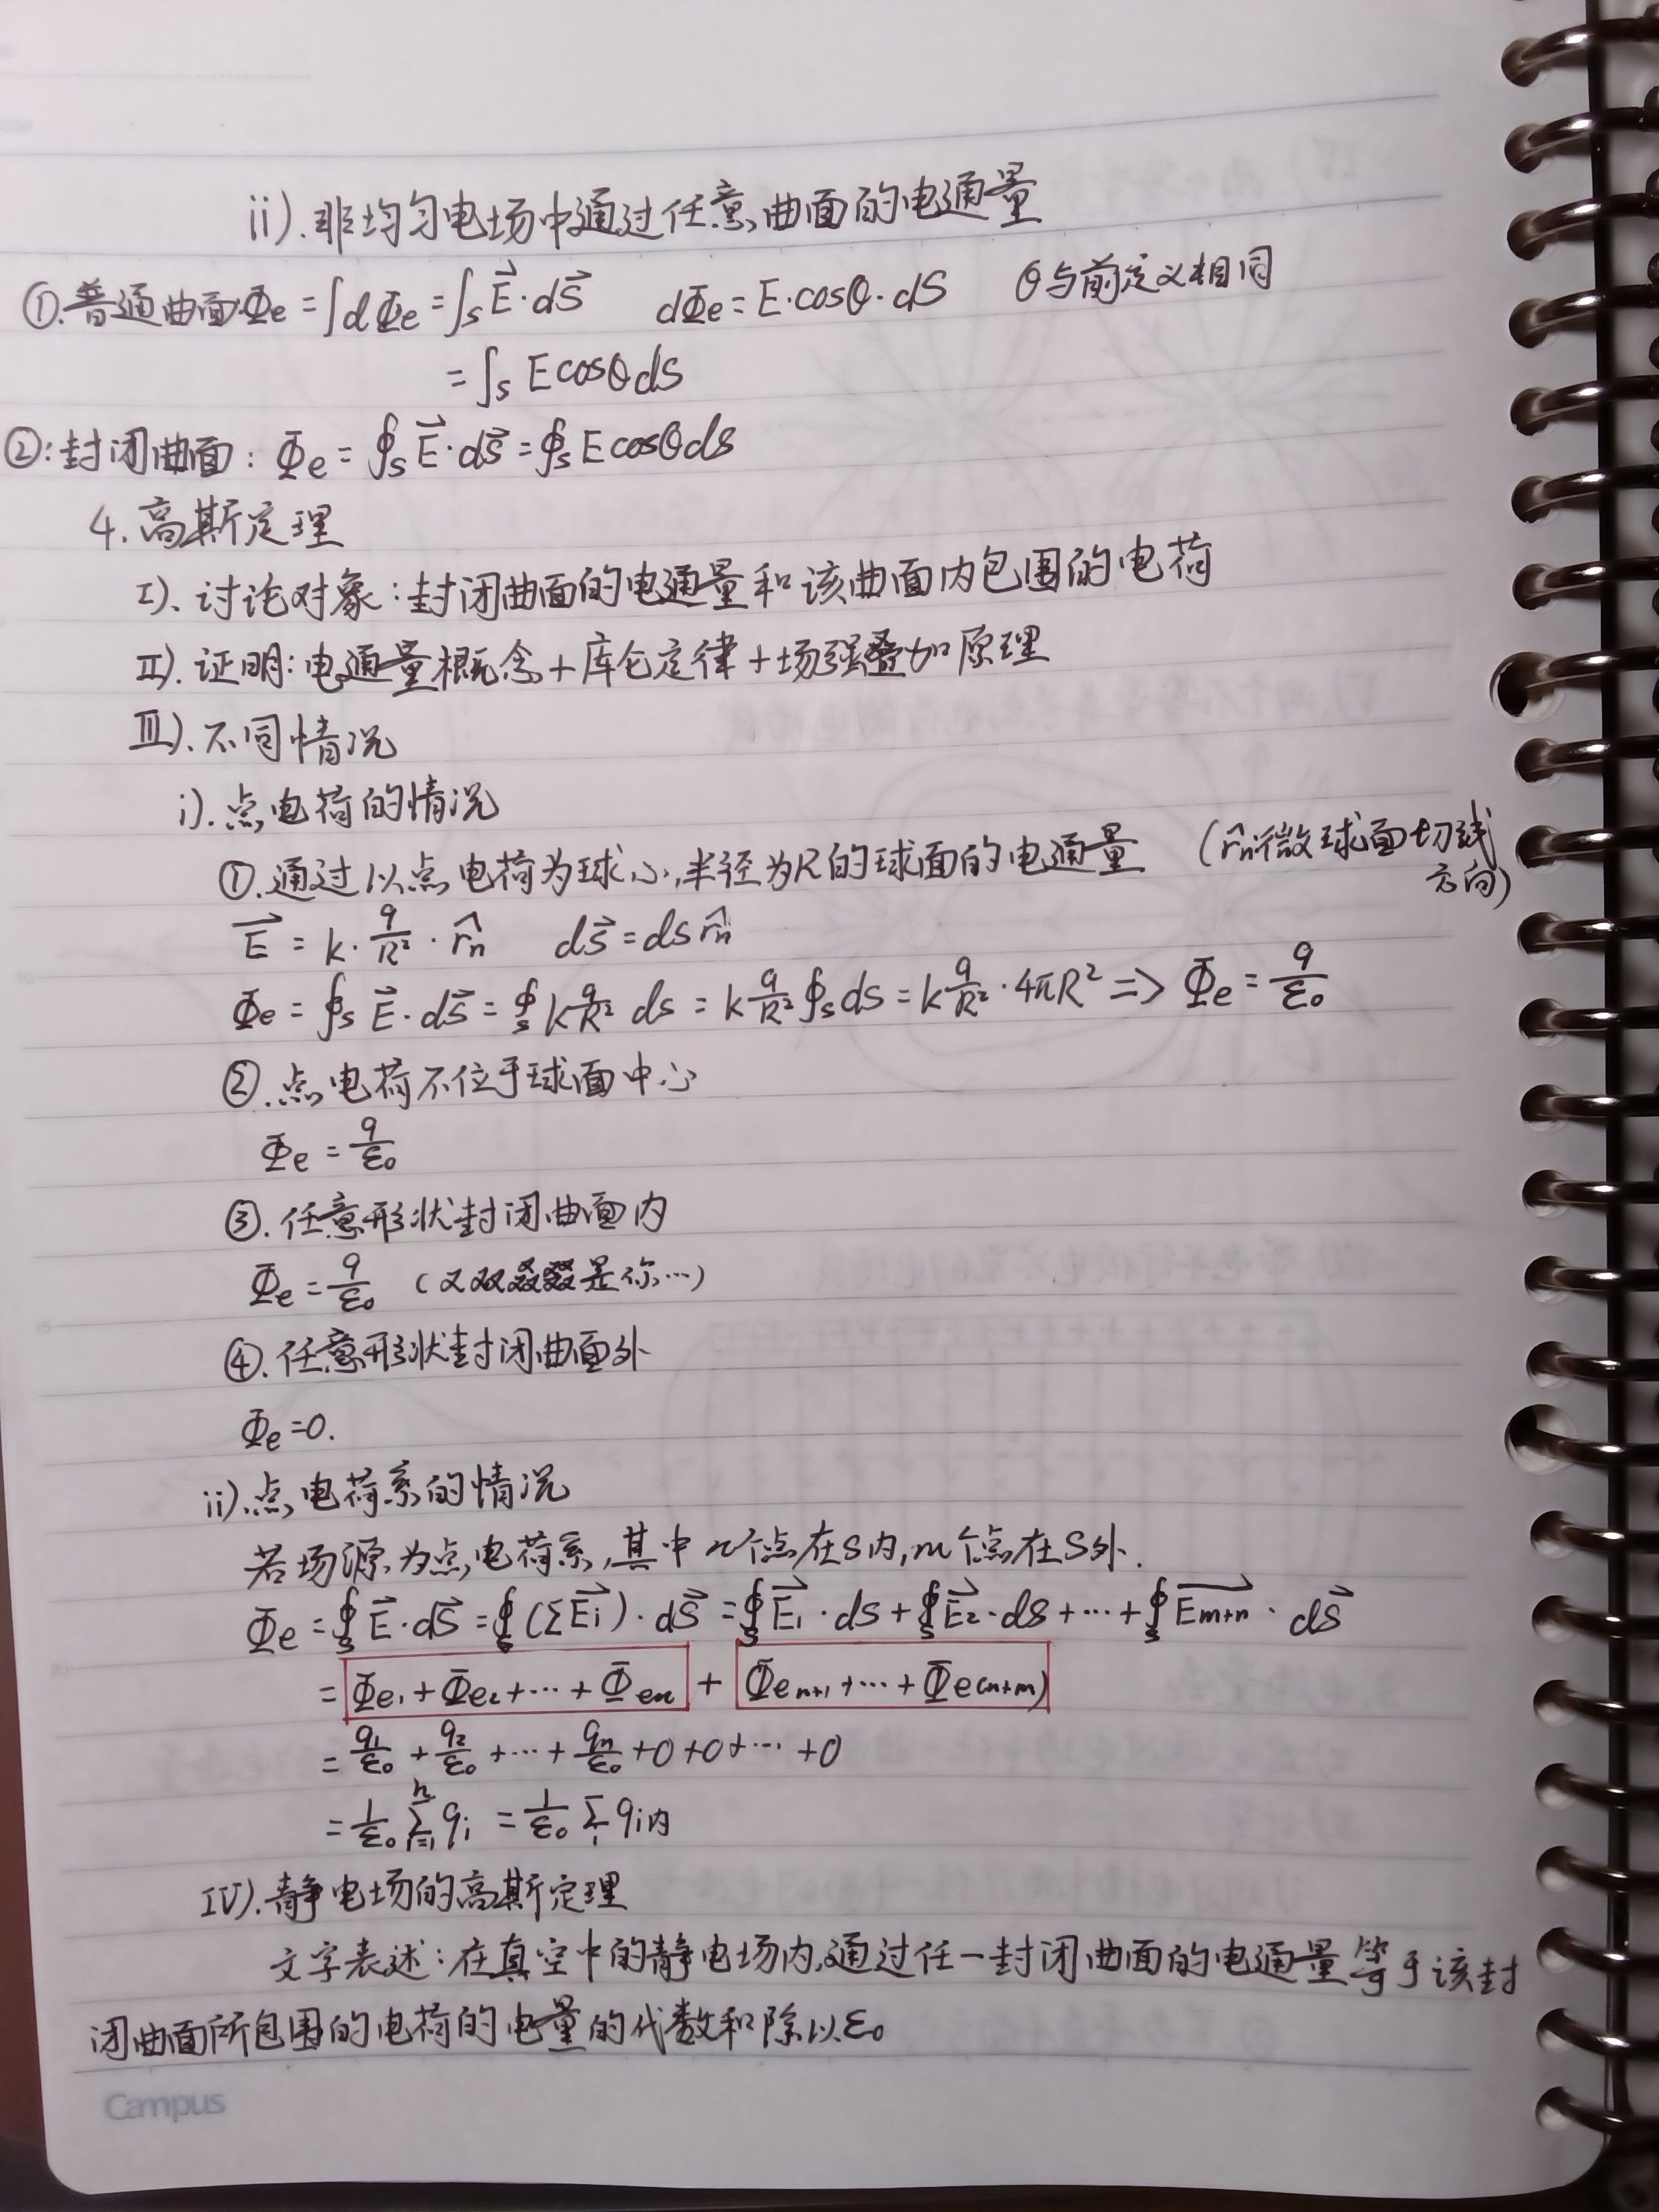 ii).非均匀电场中通过任意曲面的电通量
①.普通曲面:Φe = ∫dΦe = ∫s E⃗·dS⃗ dΦe = E·cosθ·dS θ与前定义相同
= ∫s E cosθ dS
②:封闭曲面: Φe = ∮s E⃗·ds⃗ = ∮s E cosθ ds
4.高斯定理
I)、讨论对象:封闭曲面的电通量和该曲面内包围的电荷
II).证明:电通量概念+库仑定律+场强叠加原理
III).不同情况
i).点电荷的情况
①.通过以点电荷为球心,半径为R的球面的电通量 (r̂n:微球面切线
方向)
E⃗ = k·q/R²·r̂n ds⃗ = ds r̂n
Φe = ∮s E⃗·ds⃗ = ∮s k q/R² ds = k q/R² ∮s ds = k q/R²·4πR² => Φe = q/ε₀
②.点电荷不位于球面中心
Φe = q/ε₀
③.任意形状封闭曲面内
Φe = q/ε₀ (又双叒叕是你…)
④.任意形状封闭曲面外
Φe=0.
ii).点电荷系的情况
若场源为点电荷系,其中n个点在S内,m个点在S外.
Φe = ∮s E⃗·dS⃗ = ∮s (ΣE⃗i)·dS⃗ = ∮s E⃗1·dS + ∮s E⃗2·dS + ⋯ + ∮s E⃗m+n·dS⃗
= Φe1 + Φe2 + ⋯ + Φen + Φe n+1 + ⋯ + Φe(n+m)
= q1/ε₀ + q2/ε₀ + ⋯ + qn/ε₀ + 0 + 0 + ⋯ + 0
= 1/ε₀ Σ(i=1→n) qi = 1/ε₀ Σi qi内
IV).静电场的高斯定理
文字表述:在真空中的静电场内,通过任一封闭曲面的电通量等于该封
闭曲面所包围的电荷的电量的代数和除以ε₀
Campus